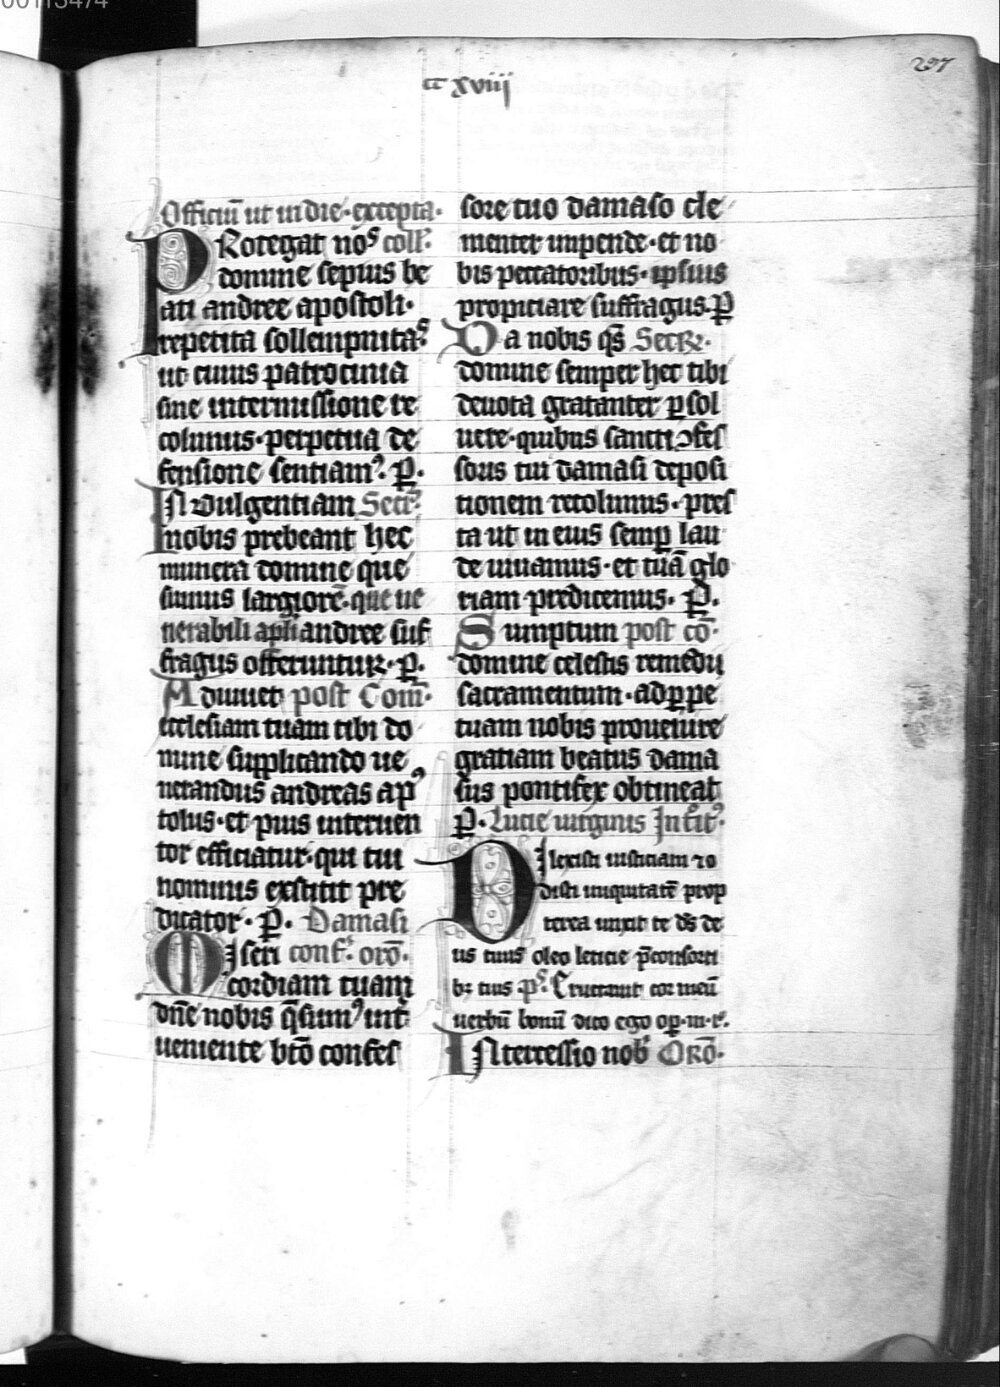 00113474
297
ccxviii
Officiu̅ ut in die · excepta ·
PRotegat nos coll̅.
domine sepius be
ati andree apostoli ·
repetita sollempnitas
ut cuius patrocinia
sine intermissione re
colimus · perpetua̅ de
fensione̅ sentiamꝰ. P̲.
INdulgentiam Secr̅.
nobis prebeant hec
munera domine que
sumus largiore̅ · que ue
nerabili̅ apl̅i andree suf
fragiis offeruntur · P̲.
Adiuuet post Com̅ ·
ecclesiam tuam tibi do
mine supplicando ue
nerandus andreas apꝰ
tolus · et pius interuen
tor efficiatur · qui tui
nominis exstitit pre
dicator · P̲. Damasi
MIseri conf̅. oro̅ ·
cordiam tuam
dn̅e nobis q̅sumꝰ int̅
ueniente bt̅o confes
sore tuo damaso cle
menter impende · et no
bis peccatoribus · ipsius
propiciare suffragiis. P̲
Da nobis q̅s Secr̅ ·
domine semper hec tibi
deuota gratanter ꝑsol
uere · quibus sancti ꝯfes
soris tui damasi deposi
tionem recolimus · pres
ta ut in eius semꝑ lau
de uiuamus · et tua̅ glo
riam predicemus · P̲.
Sumptum post co̅ ·
domine celestis remedii
sacramentum · ad ꝑpe
tuam nobis prouenire
gratiam beatus dama
sus pontifex obtineat
P̲. Lucie uirginis Introitꝰ
DIlexisti iusticiam ⁊ o
disti iniquitate̅ prop
terea unxit te ds̅ de
us tuus oleo leticie p̅consorti
bꝫ tuis ps̅. Eructauit cor meu̅
uerbu̅ bonu̅ dico ego oꝑ · m · r̅.
INtercessio nob̅ Oro̅ ·